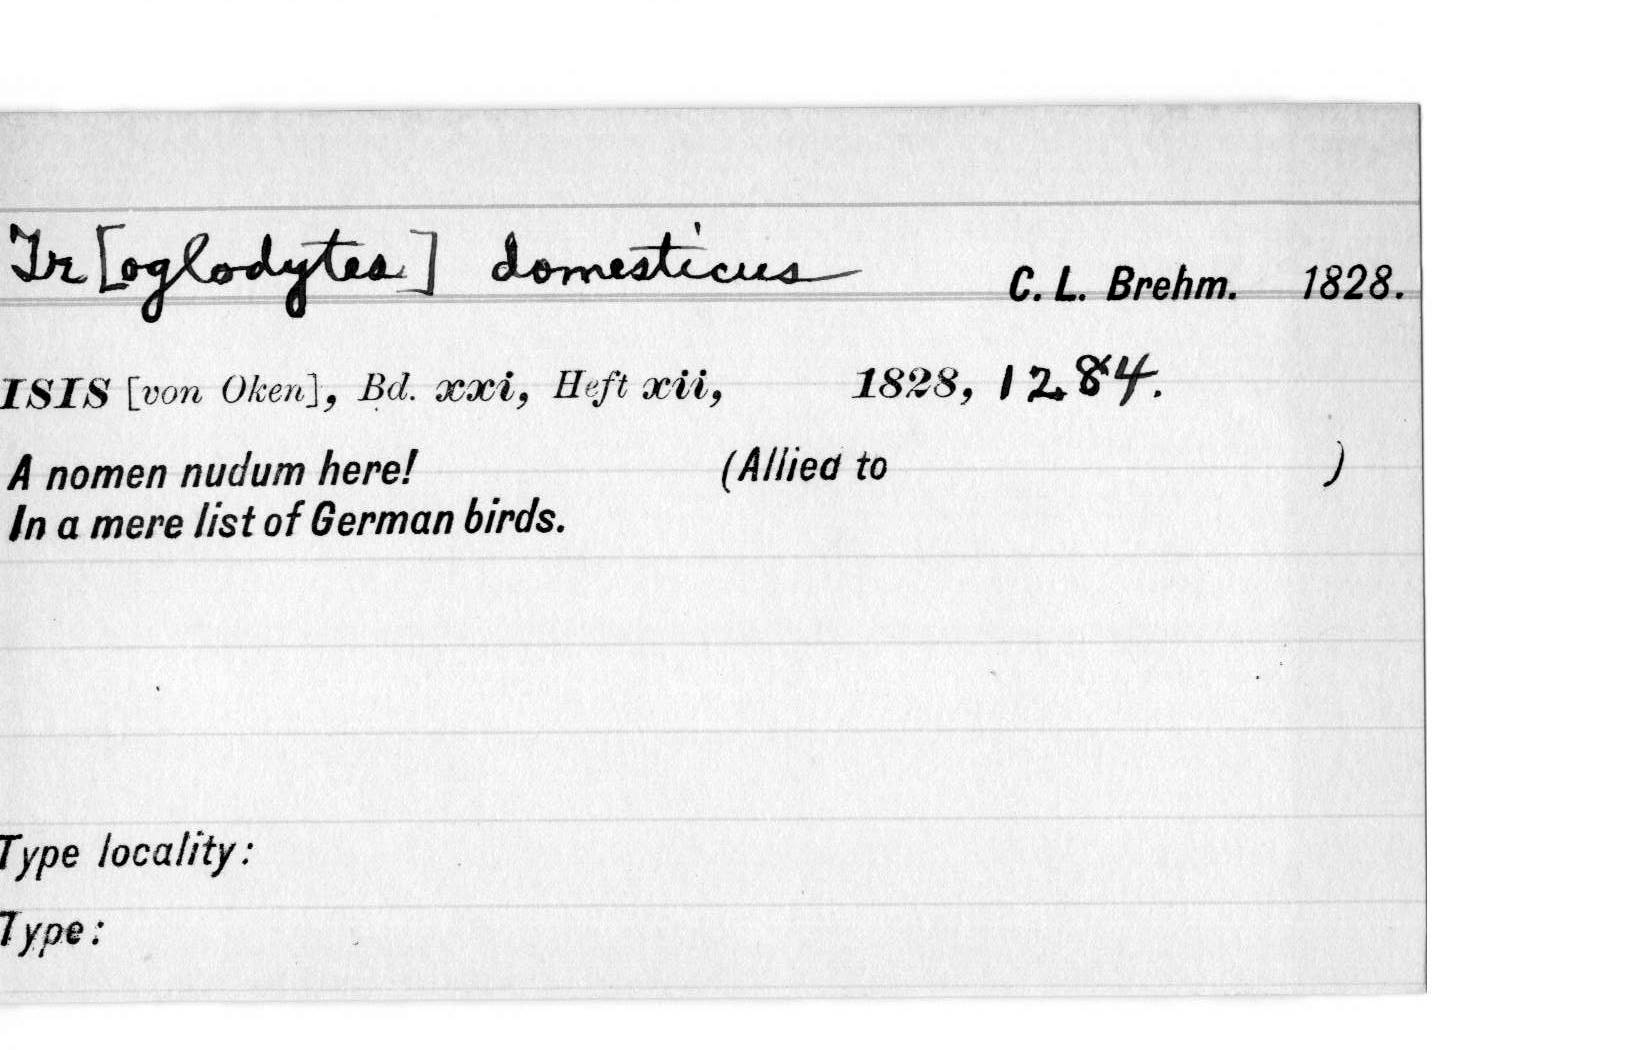 Tr[oglodytes] domesticus C. L. Brehm. 1828.
ISIS [von Oken], Bd. xxi, Heft xii, 1828, 1284.
A nomen nudum here! (Allied to )
In a mere list of German birds.
Type locality:
Type: